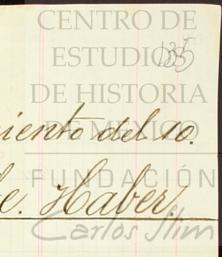 CENTRO DE
ESTUDIOS
135
DE HISTORIA
DE MÉXICO
iento del 10.
FUNDACIÓN
e. Haber.
Carlos Slim